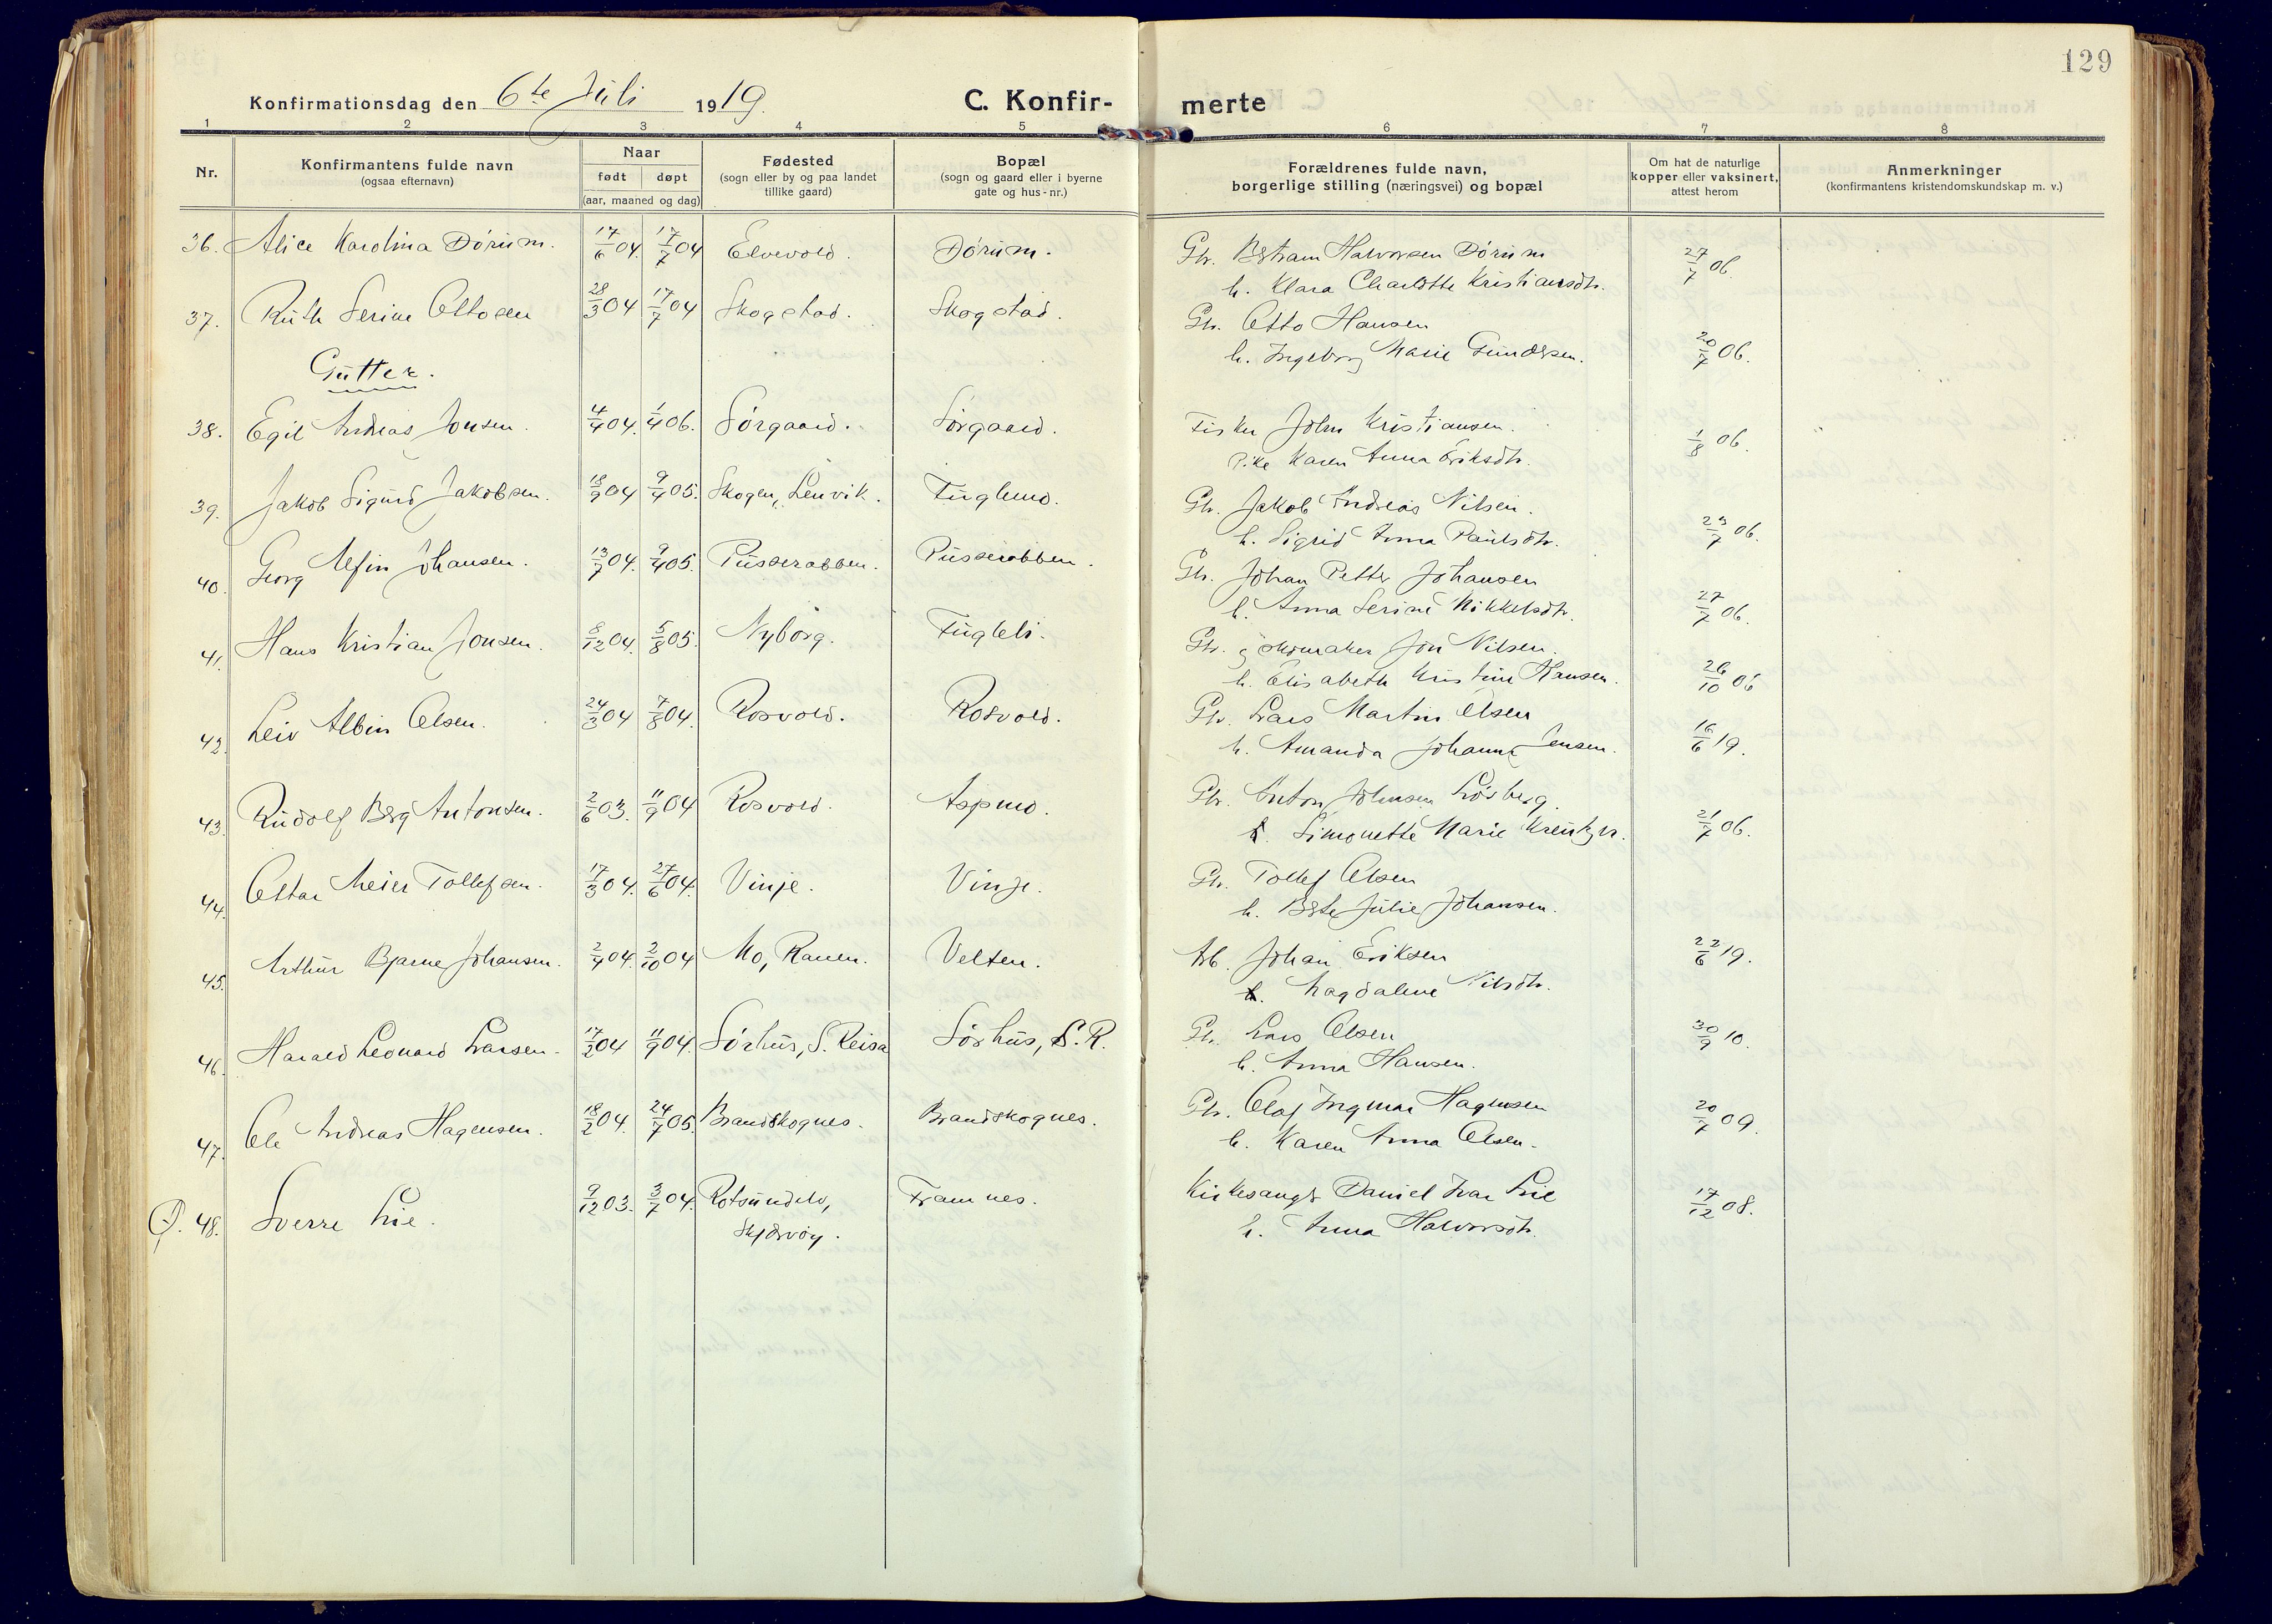 129
Konfirmationsdag den 6te Juli 1919.
C. Konfir-
merte
1 2 3 4 5 6 7 8
Nr.
Konfirmantens fulde navn
(ogsaa efternavn)
Naar
født døpt
(aar, maaned og dag)
Fødested
(sogn eller by og paa landet
tillike gaard)
Bopæl
(sogn og gaard eller i byerne
gate og hus-nr.)
Forældrenes fulde navn,
borgerlige stilling (næringsvei) og bopæl
Om hat de naturlige
kopper eller vaksinert,
attest herom
Anmerkninger
(konfirmantens kristendomskundskap m. v.)
36. Alice Karolina Dórum. 17/6 04. 17/7 04 Elvevold. Dórum. Gbr. Bertram Halvorsen Dórum 27/7 06.
h. Klara Charlotte Kristiansdtr.
37. Ruth Serine Ottosen 28/3 04 17/7 04 Skogstad. Skogstad. Gbr. Otto Hansen
h. Ingeborg Marie Gundersen. 20/7 06.
Gutter.
38. Egil Andreas Jonsen. 4/4 04. 1/4 06. Sórgaard. Sórgaard. Fisker John Kristiansen.
Pike Karen Anna Eriksdtr. 1/8 06.
39. Jakob Sigurd Jakobsen. 18/9 04 9/4 05. Skogen, Lenvik. Fuglmo. Gbr. Jakob Andreas Nilsen.
h. Sigrid Anna Paulsdtr. 23/7 06.
40. Georg Alfin Johansen. 13/7 04. 9/4 05. Russerabben. Russerabben. Gbr. Johan Petter Johansen
h. Anna Serine Mikkelsdtr. 27/7 06.
41. Hans Kristian Jonsen. 8/12 04. 5/8 05. Nyborg. Fugleli. Gbr. g skomaker Jon Nilsen.
h. Elisabeth Kristine Hansen. 26/10 06
42. Leiv Albin Olsen. 24/3 04 7/8 04. Rosvold. Rosvold. Gbr. Lars Martin Olsen
h. Amanda Johanna Jensen. 16/6 19.
43. Rudolf Berg Antonsen. 2/6 03. 11/9 04 Rosvold. Aspmo. Gbr. Anton Johnsen
h. Simonette Marie 21/7 06.
44. Ottar Meier Tollefsen. 17/3 04. 27/6 04. Vinje. Vinje. Gbr. Tollef Olsen
h. Berte Julie Johansen.
45. Arthur Bjarne Johansen. 2/4 04. 2/10 04 Mo, Ranen. Velten. Arb. Johan Eriksen 22/6 19.
h. Magdalene Nilsdtr.
46. Harald Leonard Larsen. 17/2 04 11/9 04. Sórhus, S. Reisa Sórhus, S. R. Gbr. Lars Olsen 30/9 10.
h. Anna Hansen.
47. Ole Andreas Hagensen. 18/2 04. 24/7 05. Brandskognes. Brandskognes. Gbr. Olaf Ingmar Hagensen 20/7 09.
h. Karen Anna Olsen.
48. Sverre Lie. 9/12 03. 3/7 04. Rotsundelv, Framnes. Kirkesanger Daniel Ivar Lie 17/12 08.
Skjervøy. h. Anna Halvorsdtr.